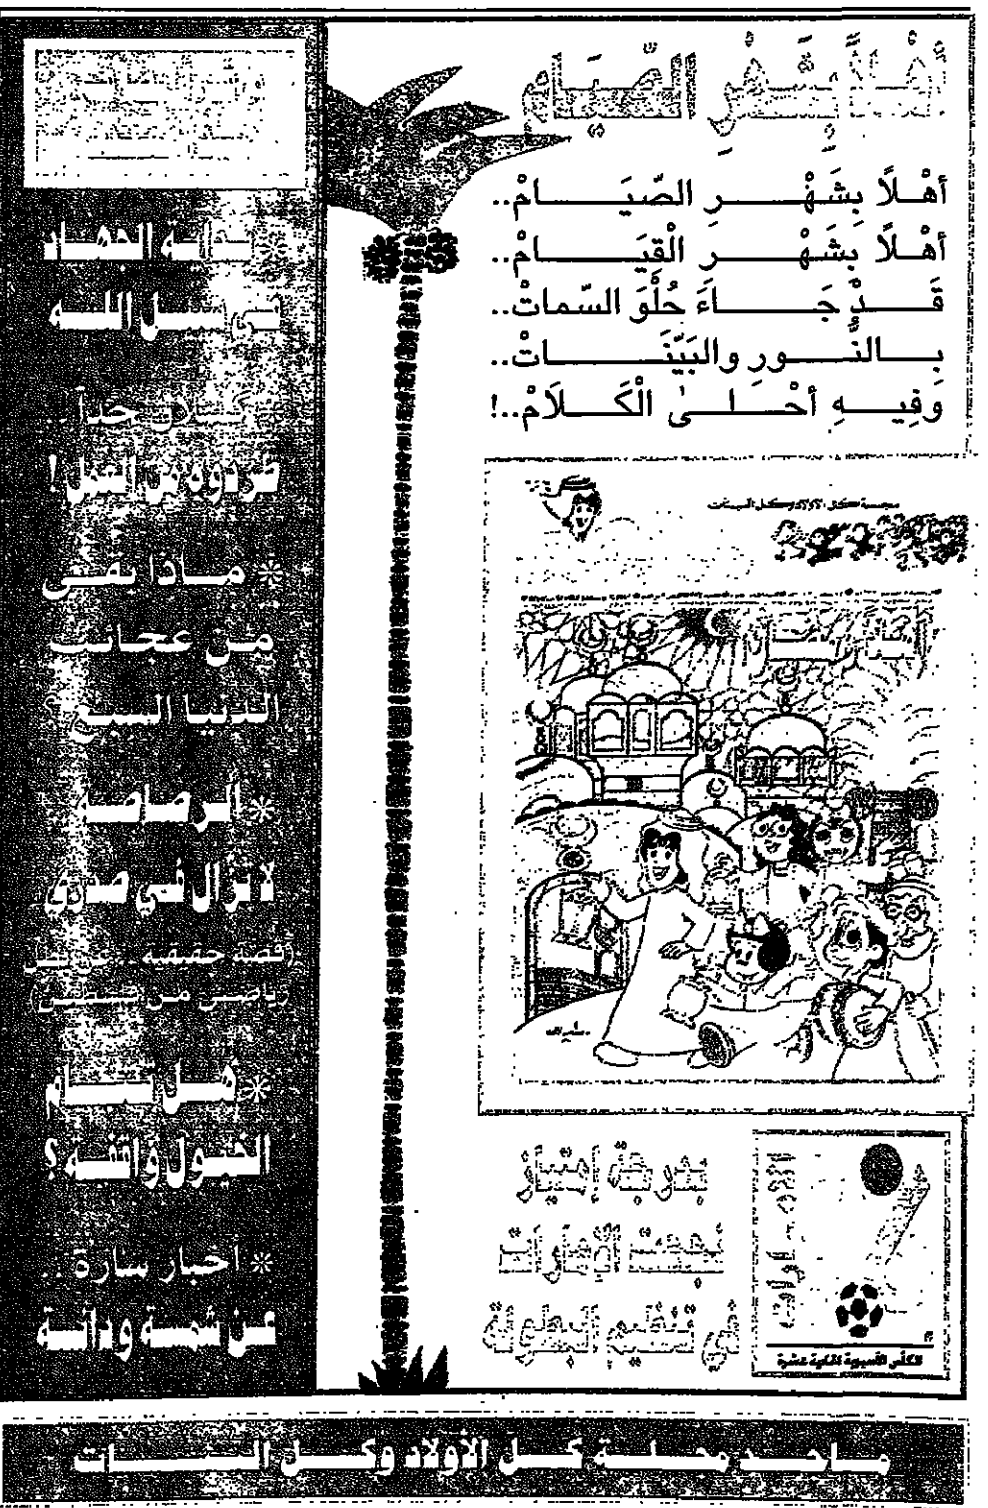 أَهْلًا بِشَهْرِ الصِّيَامِ
أهْلًا بِشَهْرِ الصّيَامْ..
أهْلًا بِشَهْرِ الْقِيَامْ..
قَدْ جَاءَ حُلْوَ السّماتْ..
بالنُّورِ والبَيِّنَاتْ..
وَفِيهِ أحْلىٰ الْكَلَامْ..!
مجلة كل الأولاد وكل البنات
بدرجة امتياز
نجحت الإمارات
في تنظيم البطولة
الكأس الآسيوية الحادية عشرة
بداية الجهاد
في سبيل الله
كسلان جداً..
طردوه من العمل!
* ماذا بقى
من عجائب
الدنيا السبع
* الرصاصة
لا تزال في صدري
(قصة حقيقية عن بطل
رياضي من فلسطين)
* هل تنام
الخيول واقفة؟
* أخبار سارة ..
عن شمسة ودانة
ماجد مجلة كل الأولاد وكل البنات